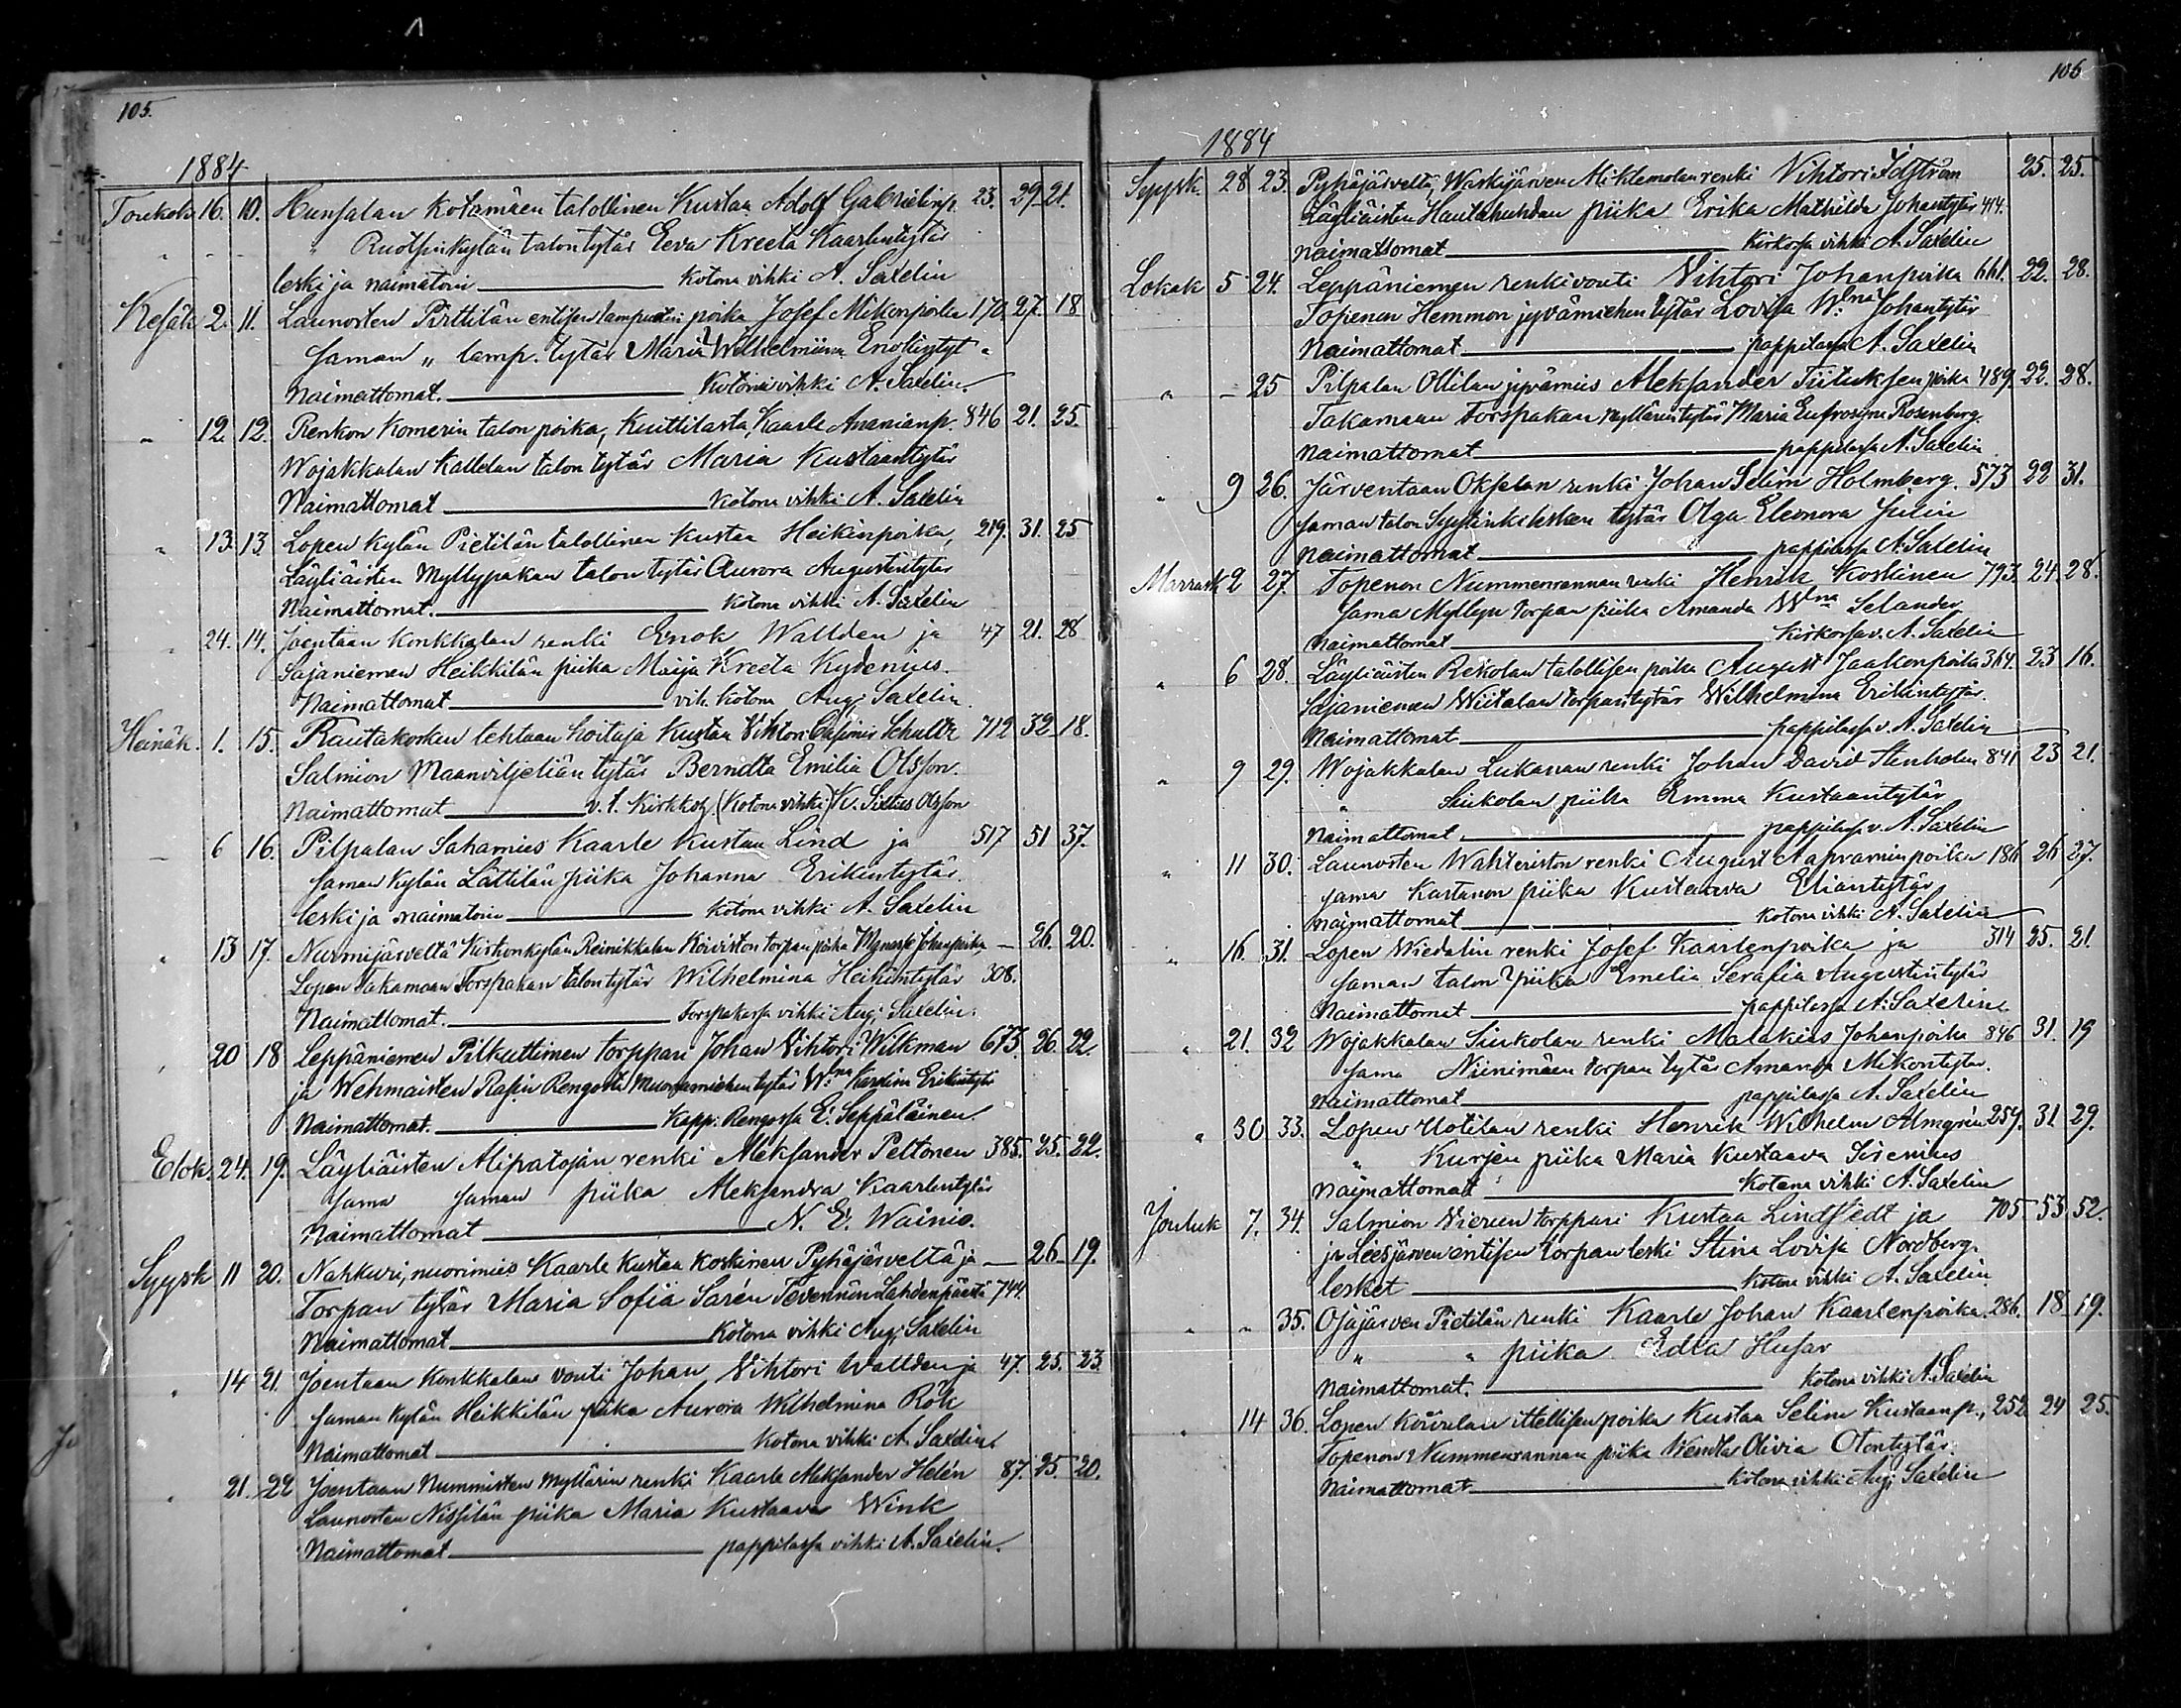 105.
1884
Toukok. 16. 10. Hunsalan Kotamäen talollinen Kustaa Adolf Gabrielinp. 23. 29 21.
" Ruotsinkylän talon tytär Eeva Kreeta Kaarlentytär
leski ja naimatoin — Kotona vihki A. Saxelin
Kesäk. 2. 11. Launosten Pirttilän entisen lampuotin poika Josef Mikonpoika 170. 27. 18
saman " lamp. tytär Maria Wilhelmiina Enokintyt.
Naimattomat. — Kotona vihki A. Saxelin
" 12 12. Renkon Komerin talon poika, Kuittilasta, Kaarle Ananianp. 846 21. 25.
Wojakkalan Kallelan talon tytär Maria Kustaantytär
Naimattomat — Kotona vihki A. Saxelin
" 13. 13. Lopen kylän Pietilän talollinen Kustaa Heikinpoika, 219. 31. 25
Läyliäisten Myllypakan talon tytär Aurora Augustintytär
Naimattomat. — Kotona vihki A. Saxelin
" 24. 14. Joentaan Konkkalan renki Enok Wallden ja 47 21. 28
Sajaniemen Heikkilän piika Maija Kreeta Kydenius
Naimattomat — vih. kotona Aug. Saxelin.
Heinäk. 1. 15. Rautakosken tehtaan hoitaja Kustaa Vihtori Casimir Schultz 712 32 18.
Salmion Maanviljeliän tytär Berndta Emilia Olsson.
Naimattomat — v. t. Kirkkoh. (Kotona vihki) K. Sixtus Olsson
— 6 16. Pilpalan Sahamies Kaarle Kustaa Lind ja 517 51 37.
saman kylän Lättilän piika Johanna Erikintytär
leski ja naimatoin — Kotona vihki A. Saxelin
" 13 17. Nurmijärveltä Reinikkalan Koiviston torpan poika Johanpoika, — 26. 20.
Lopen Takamaan Forspakan talon tytär Wilhelmina Heikintytär 308.
Naimattomat. — Forspakassa vihki Aug. Saxelin.
" 20 18 Leppäniemen Pilkuttimen torppari Johan Vihtori Wilkman 673 26 22
ja Wehmaisten Rasin Rengosta tytär W:na Karolina Erikintytär
Naimattomat. — Kapp. Rengossa E. Seppäläinen.
Elok. 24. 19. Läyliäisten Alipatojan renki Aleksander Peltonen 385. 25. 22.
Sama saman piika Aleksandra Kaarlentytär
Naimattomat — N. E. Wainio.
Syysk 11 20. Nahkuri, nuorimies Kaarle Kustaa Koskinen Pyhäjärveltä ja — 26 19.
Torpan tytär Maria Sofia Sarén Tevennön Lahdenpäästä 744.
Naimattomat — Kotona vihki Aug. Saxelin
" 14 21. Joentaan Konkkalan vouti Johan Vihtori Wallden ja 47. 25. 23.
saman kylän Heikkilän piika Aurora Wilhelmina Rök
Naimattomat — Kotona vihki A. Saxelin.
" 21. 22 Joentaan Nummisten Myllärin renki Kaarle Aleksander Helén 87. 25. 20.
Launosten Nissilän piika Maria Kustaava Wink
Naimattomat — pappilassa vihki A. Saxelin.
106
1884
Syysk. 28 23. Pyhäjärveltä, Waskijärven Miklemolan renki Vihtori Idström 25. 25.
Läyliäisten Hautahuhdan piika Erika Mathilda Johantytär 414.
Naimattomat — Kirkossa vihki A. Saxelin
Lokak 5 24. Leppäniemen renkivouti Vihtori Johanpoika 661. 22. 28.
Topenon Hemmon jyvämiehen tytär Lovisa W:na Johantytär
Naimattomat — pappilassa A. Saxelin
" - 25 Pilpalan Ollilan jyvämies Aleksander Tiituksen poika 489. 22. 28.
Takamaan Forspakan Myllärin tytär Maria Eufrosyne Rosenberg.
Naimattomat — pappilassa A. Saxelin
" 9 26. Järventaan Oksalan renki Johan Selim Holmberg. 573 22 31.
saman talon lesken tytär Olga Eleonora Julin
Naimattomat — pappilassa A. Saxelin
Marrask 2 27. Topenon Nummenrannan renki Henrik Koskinen 793. 24. 28.
Sama Myllyn torpan piika Amanda W:na Selander
Naimattomat — Kirkossa v. A. Saxelin
" 6 28. Läyliäisten Rekolan talollisen poika August Jaakonpoika 364. 23 16.
Sajaniemen Wiitalan torparitytär Wilhelmina Erikintytär.
Naimattomat — pappilassa v. A. Saxelin
" 9 29. Wojakkalan Lukanan renki Johan David Stenholm 841 23 21.
" Siukolan piika Emma Kustaantytär
Naimattomat. — pappilassa v. A. Saxelin
" 11 30. Launosten Wahteriston renki August Aapraminpoika 186 26 27.
sama Kartanon piika Kustaava Eliantytär
Naimattomat — Kotona vihki A. Saxelin
" 16. 31. Lopen Wiedalin renki Josef Kaarlenpoika ja 314 25. 21.
saman talon piika Emelia Serafia Augustintytär
Naimattomat — pappilassa A. Saxelin
" 21. 32 Wojakkalan Siukolan renki Malakias Johanpoika 846 31. 19
sama Niinimäen torpan tytär Amanda Mikontytär.
Naimattomat — pappilassa A. Saxelin
" 30 33. Lopen Uotilan renki Henrik Wilhelm Almgrén 259. 31 29.
" Kurjen piika Maria Kustaava Sirenius
Naimattomat — Kotona vihki A. Saxelin
Jouluk 7. 34. Salmion Vierun torppari Kustaa Lindstedt ja 705 53. 52.
ja Leesjärven entisen torpan leski Stina Lovisa Nordberg.
lesket — Kotona vihki A. Saxelin
" " 35. Ojajärven Pietilän renki Kaarle Johan Kaarlenpoika. 286. 18 19.
" " piika Edla Husar
Naimattomat. — Kotona vihki A. Saxelin
" 14 36. Lopen Koivulan itsellisen poika Kustaa Selim Kustaanp., 252 24 25.
Topenon Nummenrannan piika Wendla Olivia Otontytär.
Naimattomat — Kotona vihki Aug. Saxelin